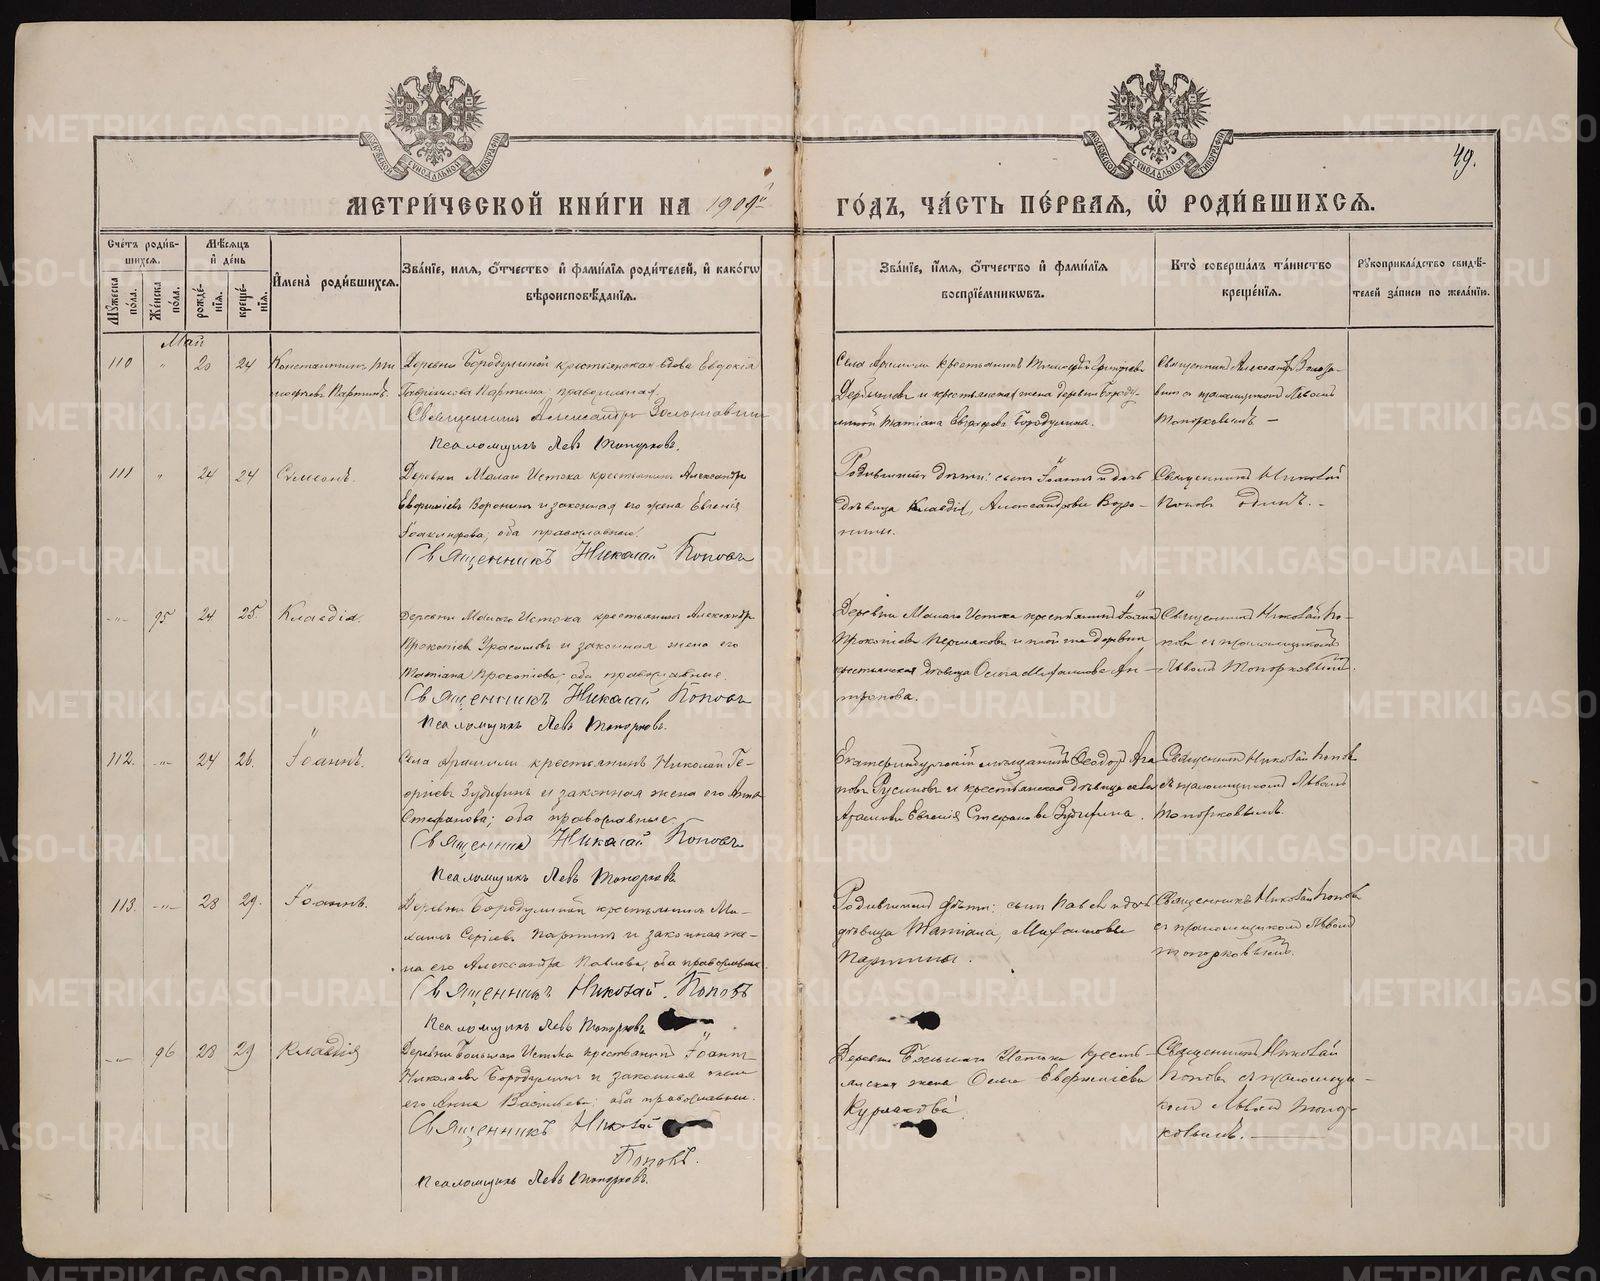 49.
МЕТРИ́ЧЕСКОЙ КНИ́ГИ НА 1909й
ГО́ДЪ, ЧА́СТЬ ПЕ́РВАЯ, Ѡ РОДИ́ВШИХСЯ.
Сче́тъ роди́в-
шихся.
Мꙋ́жеска по́ла.
Же́нска по́ла.
Мѣ́сяцъ и де́нь
рожде́нїя.
креще́нїя.
И҆мена̀ роди́вшихся.
Зва́нїе, имя, о́тчество и фами́лїя роди́телей, и како́гѡ
вѣроисповѣ́данїя.
Зва́нїе, и́мя, о́тчество и фами́лїя
воспрїе́мникѡвъ.
Кто̀ соверша́лъ та́инство
креще́нїя.
Рꙋкоприкла́дство свидѣ́-
телей за́писи по жела́нїю.
Май
110 " 20 24
Деревни Бородулиной крестьянская вдова Евдокія
Гавриилова Партина православная
Священникъ Александръ
Псаломщикъ Левъ Топорковъ.
Села Арамили крестьянинъ Тимофей Григоріевъ
и крестьянская жена деревни Бороду-
линой Татіана Бородулина.
Священникъ Александръ
съ псаломщикомъ Львомъ
Топорковымъ —
111 " 24 24 Сѵмеонъ.
Деревни Малаго Истока крестьянинъ Александръ
Воронинъ и законная его жена Евгенія
оба православные.
Священникъ Николай Поповъ
Родившагося дѣти: сынъ Іоаннъ и дочь
дѣвица Клавдія, Александровы Воро-
нины.
Священникъ Николай
Поповъ одинъ. -
-"- 95 24 25 Клавдія.
Деревни Малаго Истока крестьянинъ Александръ
Прокопіевъ и законная жена его
Татіана Прокопіева, оба православные.
Священникъ Николай Поповъ
Псаломщикъ Левъ Топорковъ.
Деревни Малаго Истока крестьянинъ Іоаннъ
Прокопіевъ и той же деревни
крестьянская дѣвица Ан-
тропова.
Священникъ Николай По-
повъ съ псаломщикомъ
Львомъ Топорковымъ.
112. -"- 24 26. Іоаннъ.
Села Арамили крестьянинъ Николай Ге-
оргіевъ и законная жена его Анна
Стефанова; оба православные
Священникъ Николай Поповъ
Псаломщикъ Левъ Топорковъ
Екатеринбургскій мѣщанинъ Ѳеодоръ Ага-
повъ Русиновъ и крестьянская дѣвица села
Арамили Евгенія Стефанова
Священникъ Николай Поповъ
съ псаломщикомъ Львомъ
Топорковымъ.
113. -"- 28 29. Іоаннъ.
Деревни Бородулиной крестьянинъ Ми-
хаилъ Сергіевъ Партинъ и законная же-
на его Александра Павлова, оба православные
Священникъ Николай Поповъ
Псаломщикъ Левъ Топорковъ
Родившагося дѣти: сынъ Павелъ и дочь
дѣвица Татіана, Михаиловы
Партины.
Священникъ Николай Поповъ
съ псаломщикомъ Львомъ
Топорковымъ.
-"- 96 28 29 Клавдія
Деревни Большаго Истока крестьянинъ Іоаннъ
Николаевъ Бородулинъ и законная жена
его Анна Васильева; оба православные.
Священникъ Николай
Поповъ.
Псаломщикъ Левъ Топорковъ.
Деревни Большаго Истока кресть-
янская жена Ольга
Священникъ Николай
Поповъ съ псаломщи-
комъ Львомъ Топор-
ковымъ.